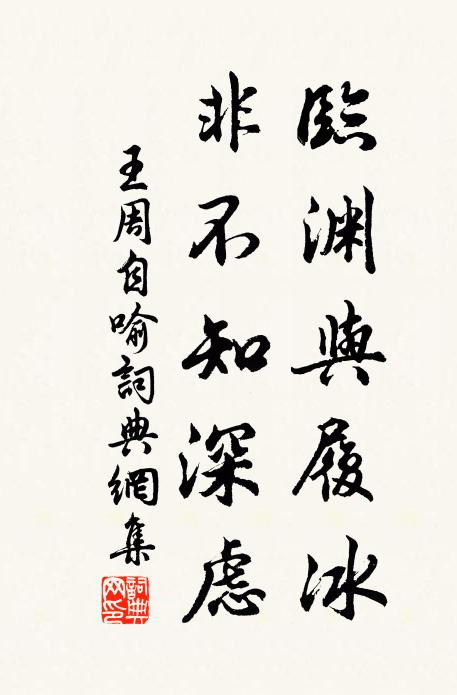 臨淵與履冰
非不知深慮
王周自喻詞典網集
詞典
网印